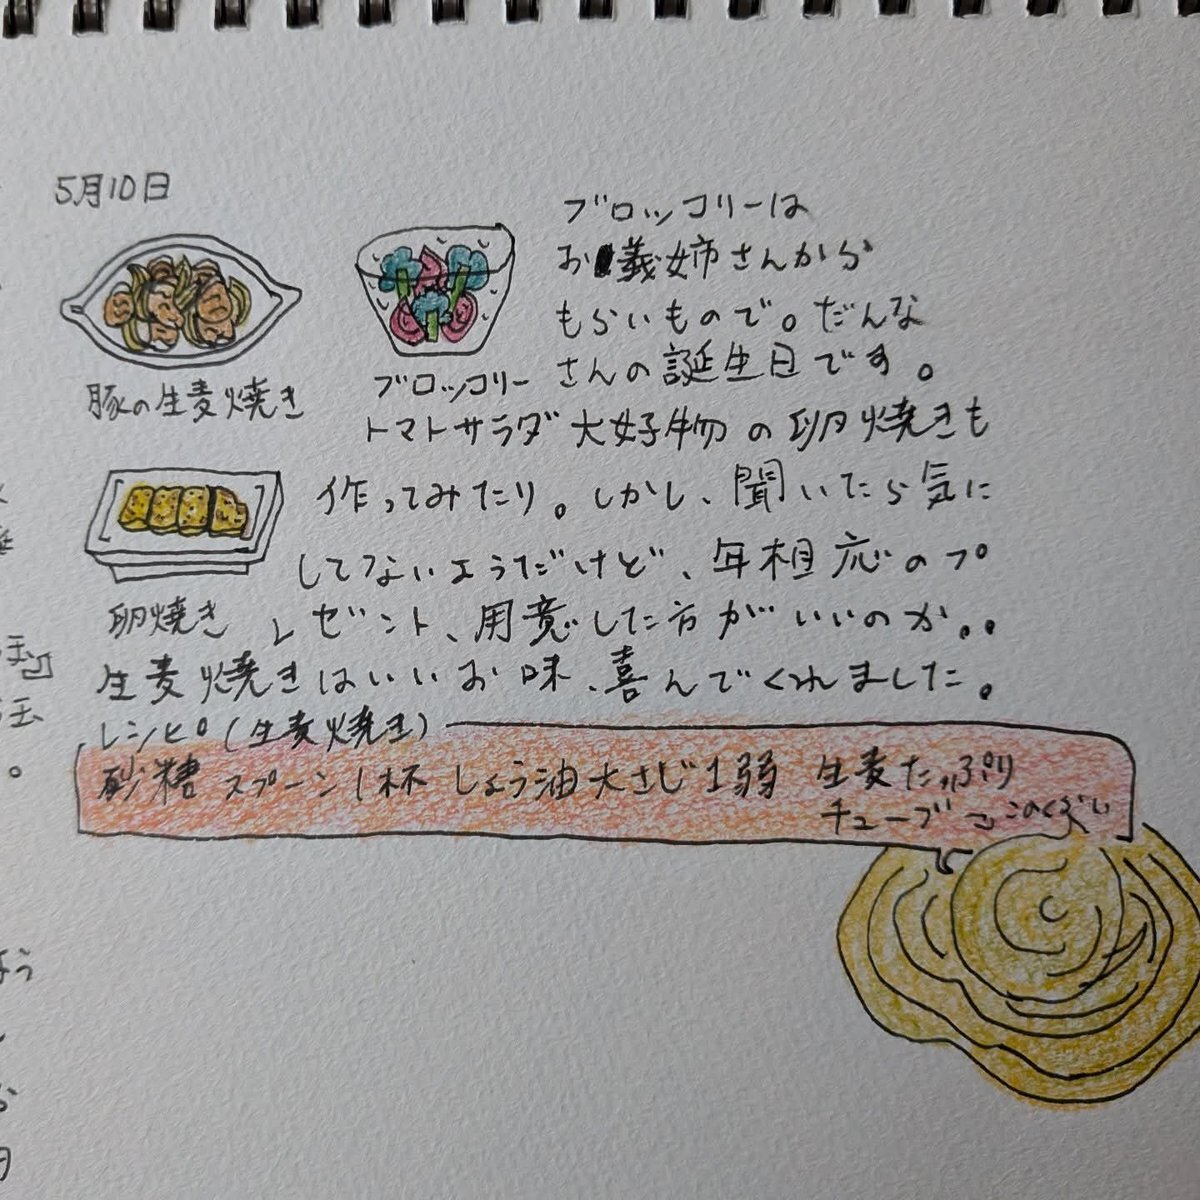 5月10日
ブロッコリーは
お義姉さんから
もらいもので。だんな
さんの誕生日です。
豚の生麦焼き
ブロッコリー
トマトサラダ
大好物の卵焼きも
作ってみたり。しかし、聞いたら気に
してないようだけど、年相応のプ
卵焼き
レゼント、用意した方がいいのか。。
生麦焼きはいいお味、喜んでくれました。
レシピ(生麦焼き)
砂糖 スプーン1杯 しょう油大さじ1弱 生麦たっぷり
チューブ
このくらい